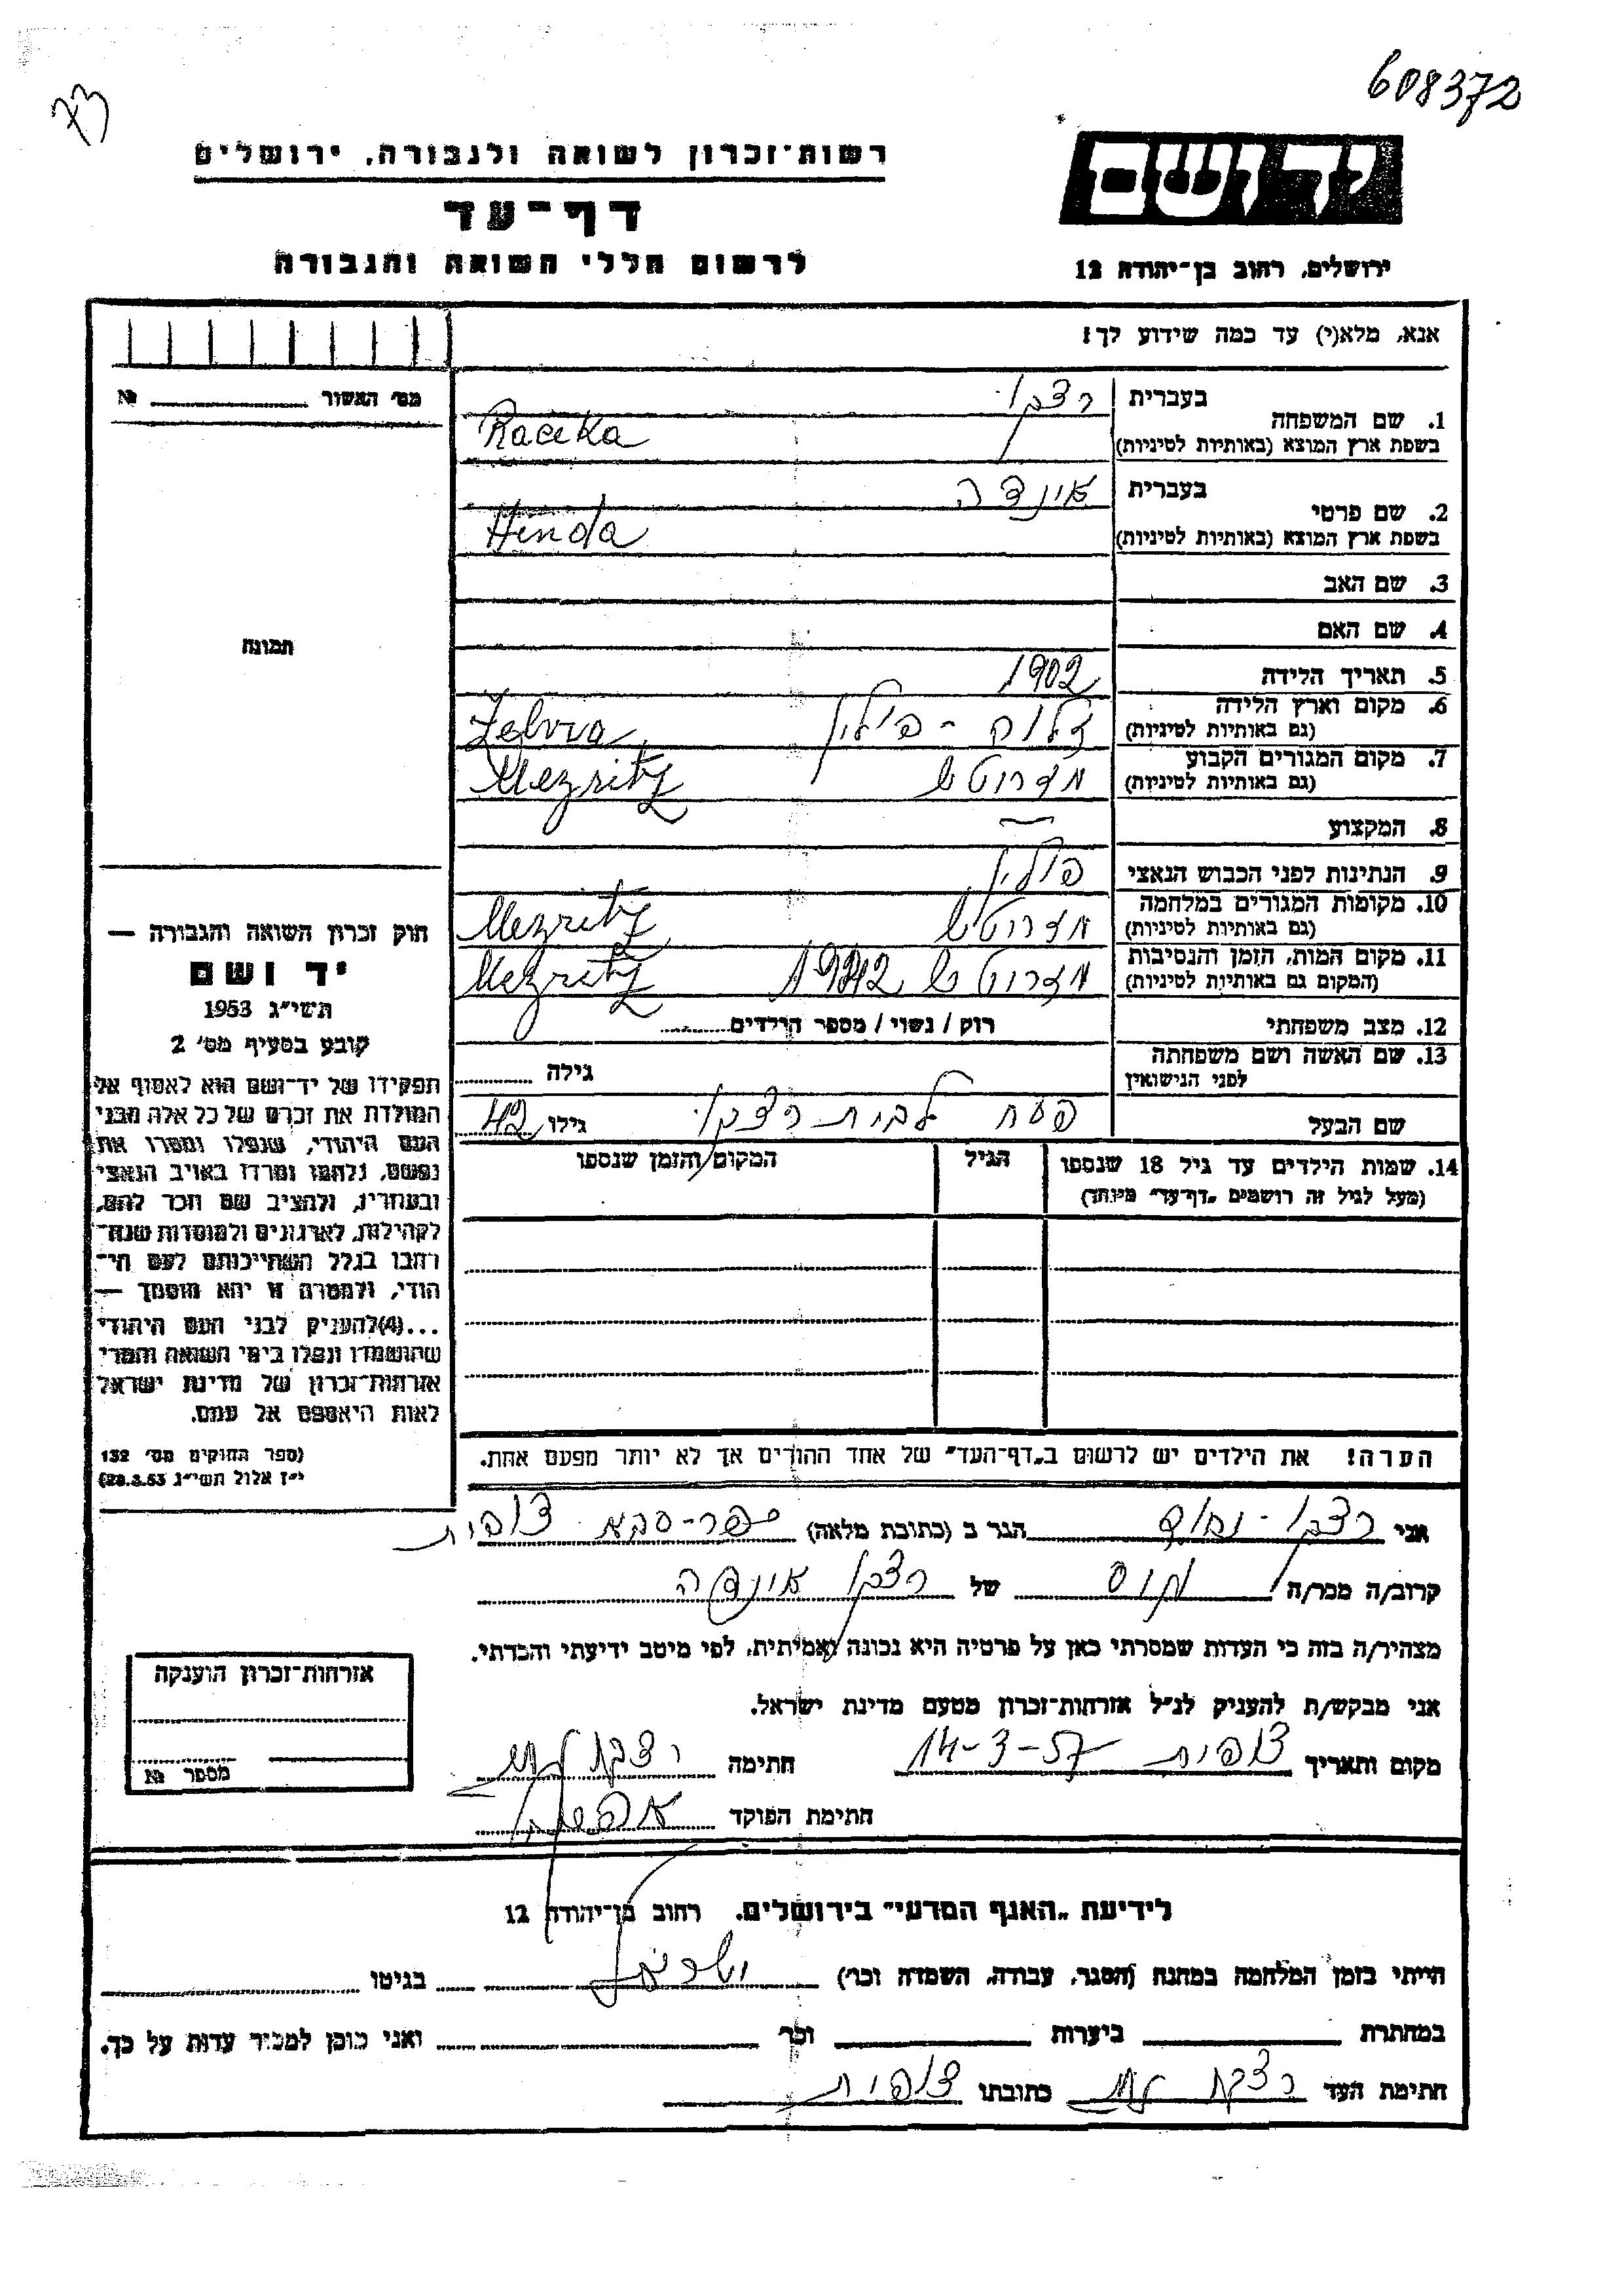 608372
73
רשות־זכרון לשואה ולגבורה, ירושלים
יד ושם
דף־עד
לרשום חללי השואה והגבורה
ירושלים, רחוב בן־יהודה 12
אנא, מלא(י) עד כמה שידוע לך:
מס׳ האשור № 
1. שם המשפחה
בעברית
בשפת ארץ המוצא (באותיות לטיניות)
Raceka
2. שם פרטי
בעברית אינדה
בשפת ארץ המוצא (באותיות לטיניות)
Hinda
3. שם האב
4. שם האם
תמונה
5. תאריך הלידה 1902
6. מקום וארץ הלידה
(גם באותיות לטיניות)
פולין
7. מקום המגורים הקבוע
(גם באותיות לטיניות)
Mezritz
8. המקצוע —
9. הנתינות לפני הכבוש הנאצי פולין
10. מקומות המגורים במלחמה
(גם באותיות לטיניות)
Mezritz
11. מקום המות, הזמן והנסיבות
(המקום גם באותיות לטיניות)
1942 Mezritz
12. מצב משפחתי רוק / נשוי / מספר הילדים
13. שם האשה ושם משפחתה
לפני הנישואין
גילה
שם הבעל פסח לבית גילו 42
14. שמות הילדים עד גיל 18 שנספו
(מעל לגיל זה רושמים „דף־עד״ מיוחד)
הגיל
המקום והזמן שנספו
הערה! את הילדים יש לרשום ב„דף־העד״ של אחד ההורים אך לא יותר מפעם אחת.
חוק זכרון השואה והגבורה —
יד ושם
תשי״ג 1953
קובע בסעיף מס׳ 2
תפקידו של יד־ושם הוא לאסוף אל
המולדת את זכרם של כל אלה מבני
העם היהודי, שנפלו ומסרו את
נפשם, נלחמו ומרדו באויב הנאצי
ובעוזריו, ולהציב שם וזכר להם,
לקהילות, לארגונים ולמוסדות שנח־
רבו בגלל השתייכותם לעם הי־
הודי, ולמטרה זו יהא מוסמך —
...(4) להעניק לבני העם היהודי
שהושמדו ונפלו בימי השואה והמרי
אזרחות־זכרון של מדינת ישראל
לאות היאספם אל עמם.
(ספר החוקים מס׳ 132
י״ז אלול תשי״ג 28.8.53)
אני הגר ב (כתובת מלאה) כפר־סבא צופית
קרוב/ה מכר/ה של אינדה
מצהיר/ה בזה כי העדות שמסרתי כאן על פרטיה היא נכונה ואמיתית, לפי מיטב ידיעתי והכרתי.
אני מבקש/ת להעניק לנ״ל אזרחות־זכרון מטעם מדינת ישראל.
מקום ותאריך צופית 14-3-57 חתימה
חתימת הפוקד
אזרחות־זכרון הוענקה
מספר №
לידיעת „האגף המדעי״ בירושלים, רחוב בן־יהודה 12
הייתי בזמן המלחמה במחנה (הסגר, עבודה, השמדה וכו׳) בגיטו
במחתרת ביערות וכו׳ ואני מוכן למסור עדות על כך.
חתימת העד כתובתו צופית